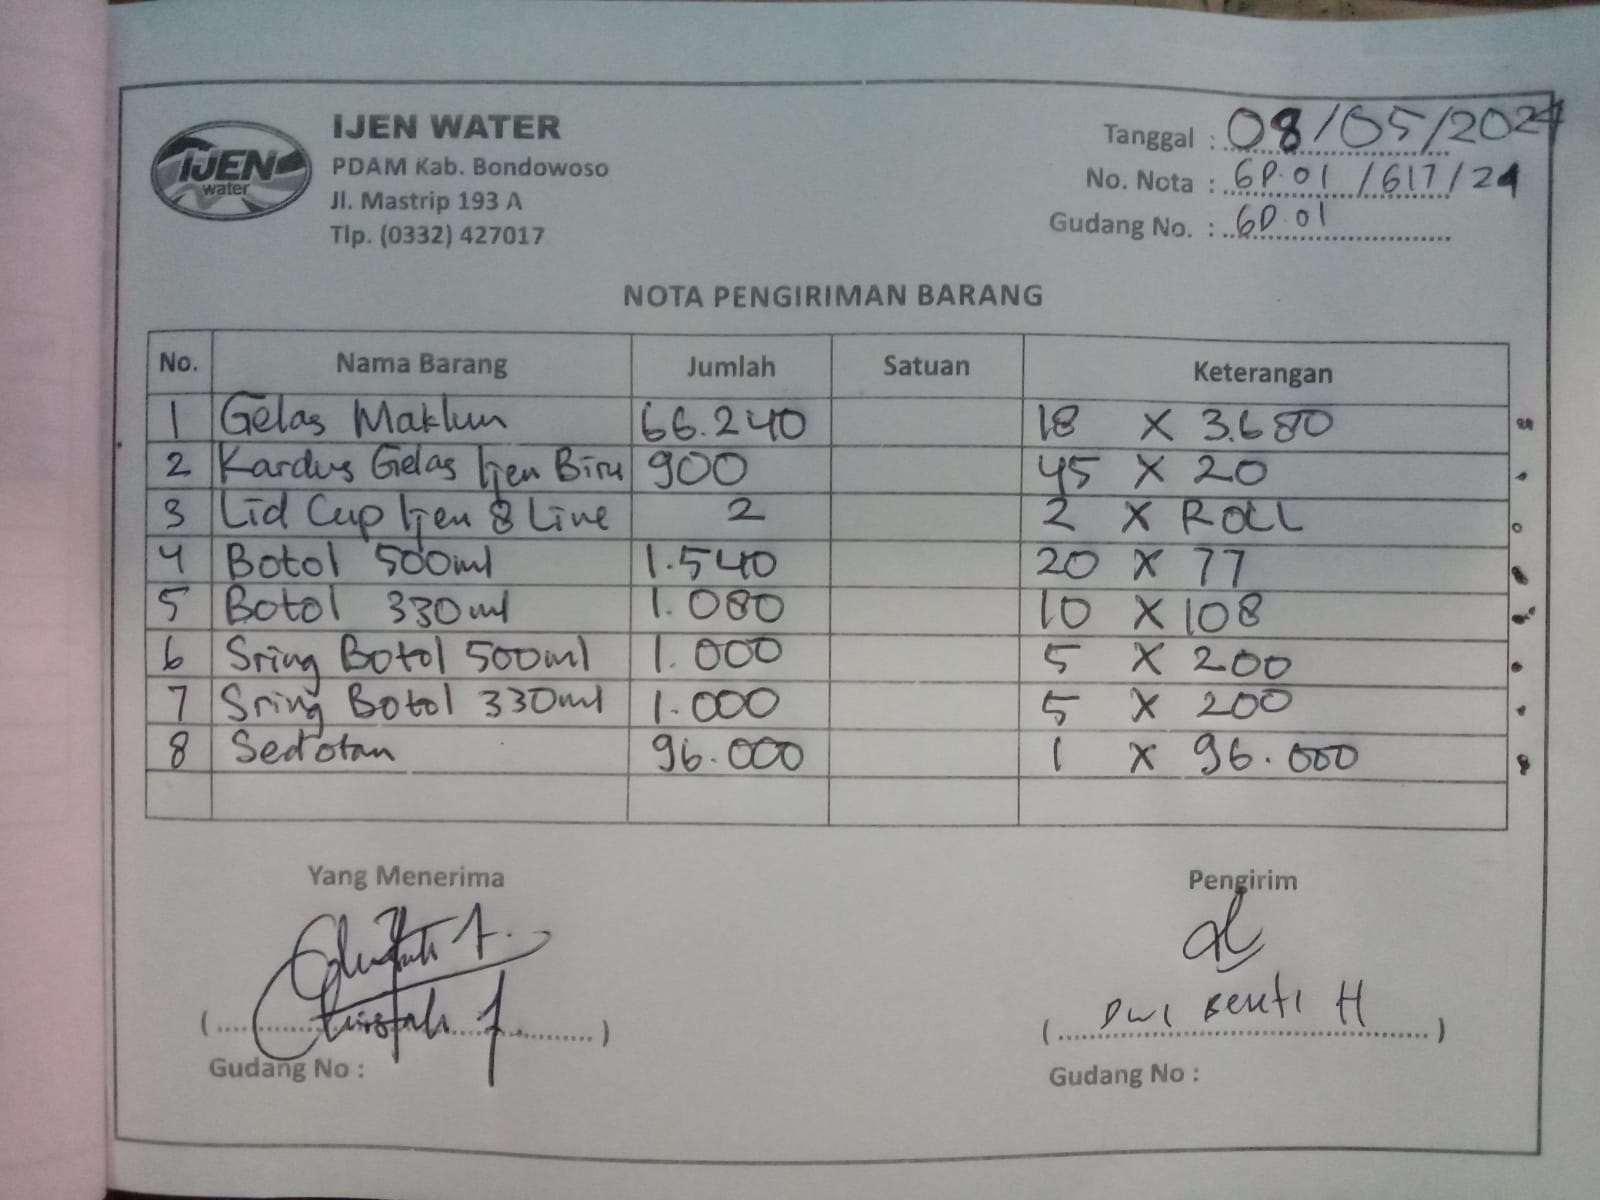 IJEN water
IJEN WATER
PDAM Kab. Bondowoso
Jl. Mastrip 193 A
Tlp. (0332) 427017
Tanggal : 08/05/2024
No. Nota : GD.01 /617/24
Gudang No. : GD.01
NOTA PENGIRIMAN BARANG
No. Nama Barang Jumlah Satuan Keterangan
1 Gelas Maklun 66.240 18 X 3.680
2 Kardus Gelas Ijen Biru 900 45 X 20
3 Lid Cup Ijen 8 Line 2 2 X ROLL
4 Botol 500ml 1.540 20 X 77
5 Botol 330ml 1.080 10 X 108
6 Sring Botol 500ml 1.000 5 X 200
7 Sring Botol 330ml 1.000 5 X 200
8 Sedotan 96.000 1 X 96.000
Yang Menerima Pengirim
Dwi H
Gudang No : Gudang No :